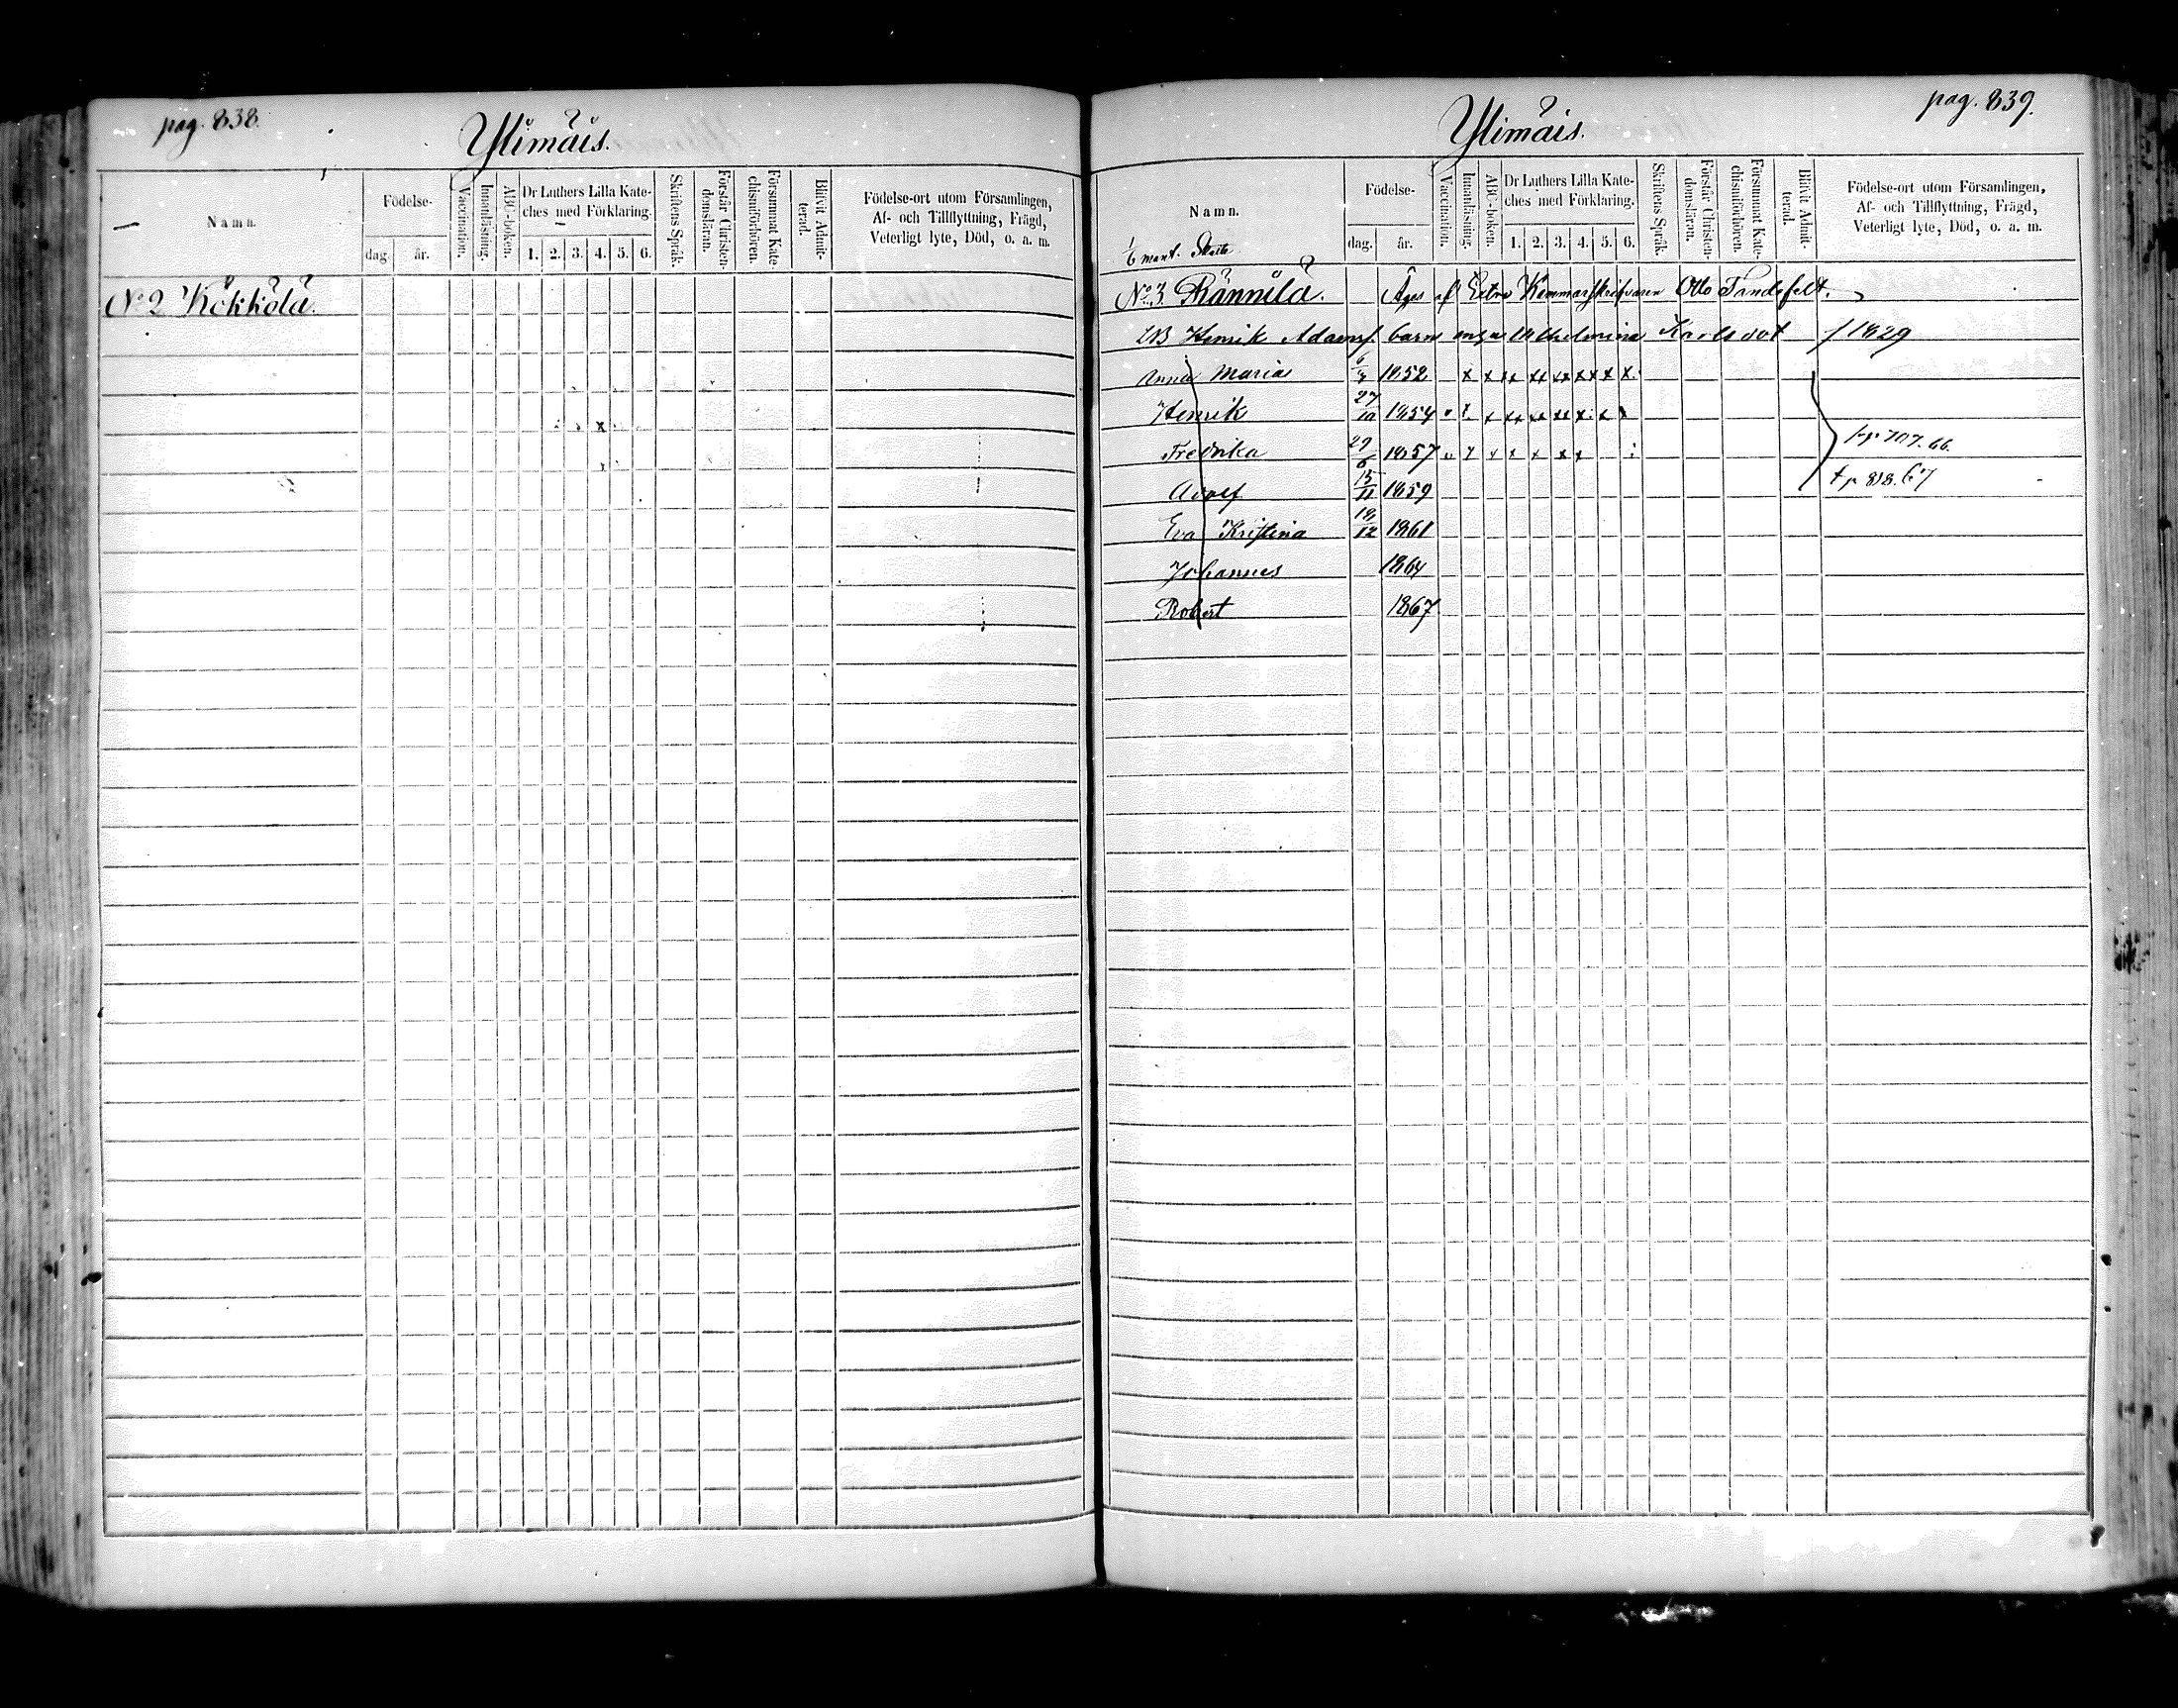 pag. 838.
Ylimäis.
Namn.
Födelse-
dag.
år.
Vaccination.
Innanläsning.
ABC-boken.
Dr Luthers Lilla Kate-
ches med Förklaring.
1. 2. 3. 4. 5. 6.
Skriftens Språk.
Förstår Christen-
domsläran.
Försummat Kate-
chismiförhören.
Blifvit Admit-
terad.
Födelse-ort utom Församlingen,
Af- och Tillflyttning, Frägd,
Veterligt lyte, Död, o. a. m.
No 2 Kökkölä.
pag. 839.
Ylimäis.
Namn.
mant. Skatte
Födelse-
dag.
år.
Vaccination.
Innanläsning.
ABC-boken.
Dr Luthers Lilla Kate-
ches med Förklaring.
1. 2. 3. 4. 5. 6.
Skriftens Språk.
Förstår Christen-
domsläran.
Försummat Kate-
chismiförhören.
Blifvit Admit-
terad.
Födelse-ort utom Församlingen,
Af- och Tillflyttning, Frägd,
Veterligt lyte, Död, o. a. m.
No 3 Rännilä. Äges af Extra Kammarskrifvaren Otto Tandefelt.
Henrik Adamss. barn Wilhelmina Karlsdot f 1829
Anna Maria 1852 x x x x x x x x x x
Henrik 27/10 1854
Fredrika 29/6 1857
Adolf 15/11 1859
fr p. 707. 66.
t p 818. 67
Eva Kristina 18/12 1861
Johannes 1864
Robert 1867